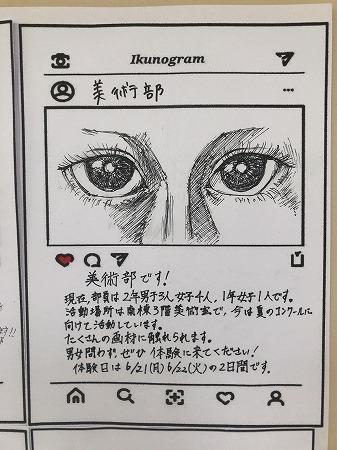 Ikunogram
美術部
美術部です!
現在、部員は2年男子3人女子4人、1年女子1人です。
活動場所は南棟3階美術室で、今は夏のコンクールに
向けて活動しています。
たくさんの画材に触れられます。
男女問わず。ぜひ体験に来てください!
体験日は6/21(月)6/22(火)の2日間です。